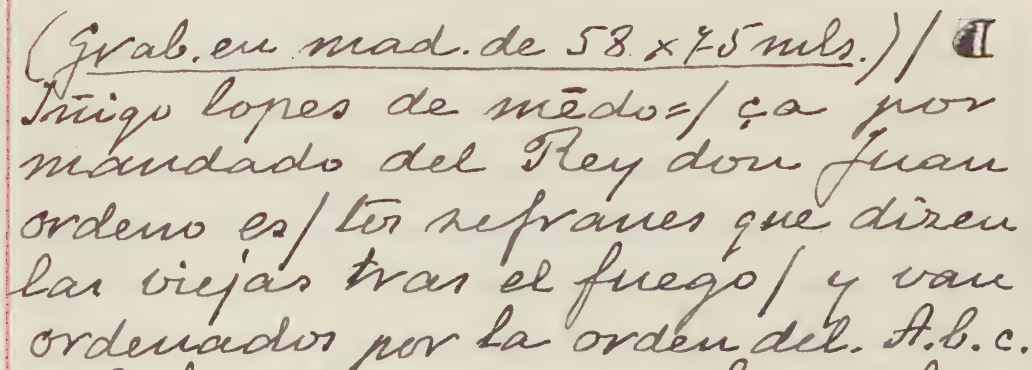 (Grab. en mad. de 58 x 75 mls.) / ¶
Iñigo lopes de mēdo=/ ça por
mandado del Rey don Juan
ordeno es/ tos refranes que dizen
las viejas tras el fuego / y van
ordenados por la orden del. A.b.c.